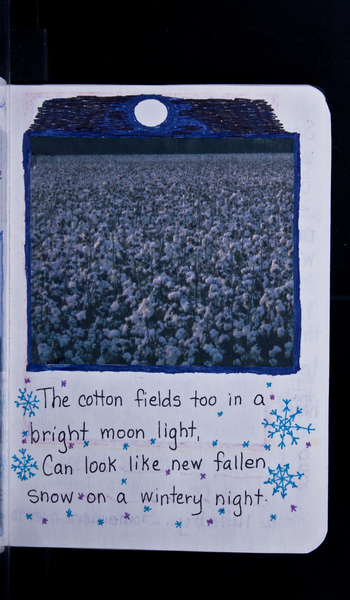 The cotton fields too in a
bright moon light,
Can look like new fallen
snow on a wintery night.